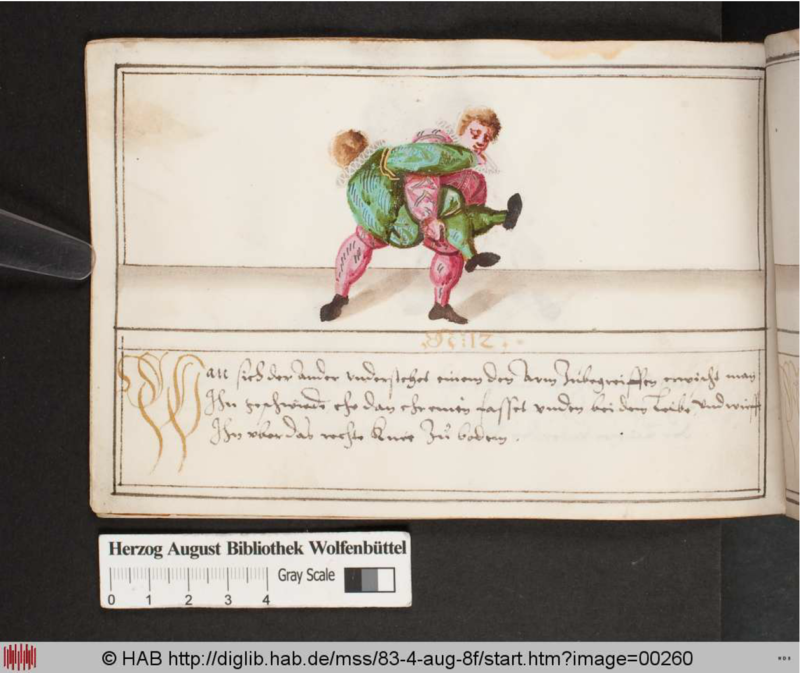 St: 12.
Wan sich der ander understehet einem den Arm zubegreiffen, erwischt man
Ihn geschwindt ehe dan ehr einen fasset unden bei dem Leibe und wirfft
Ihn uber das rechte Knie zu bodem.
Herzog August Bibliothek Wolfenbüttel
Gray Scale
0 1 2 3 4
© HAB http://diglib.hab.de/mss/83-4-aug-8f/start.htm?image=00260